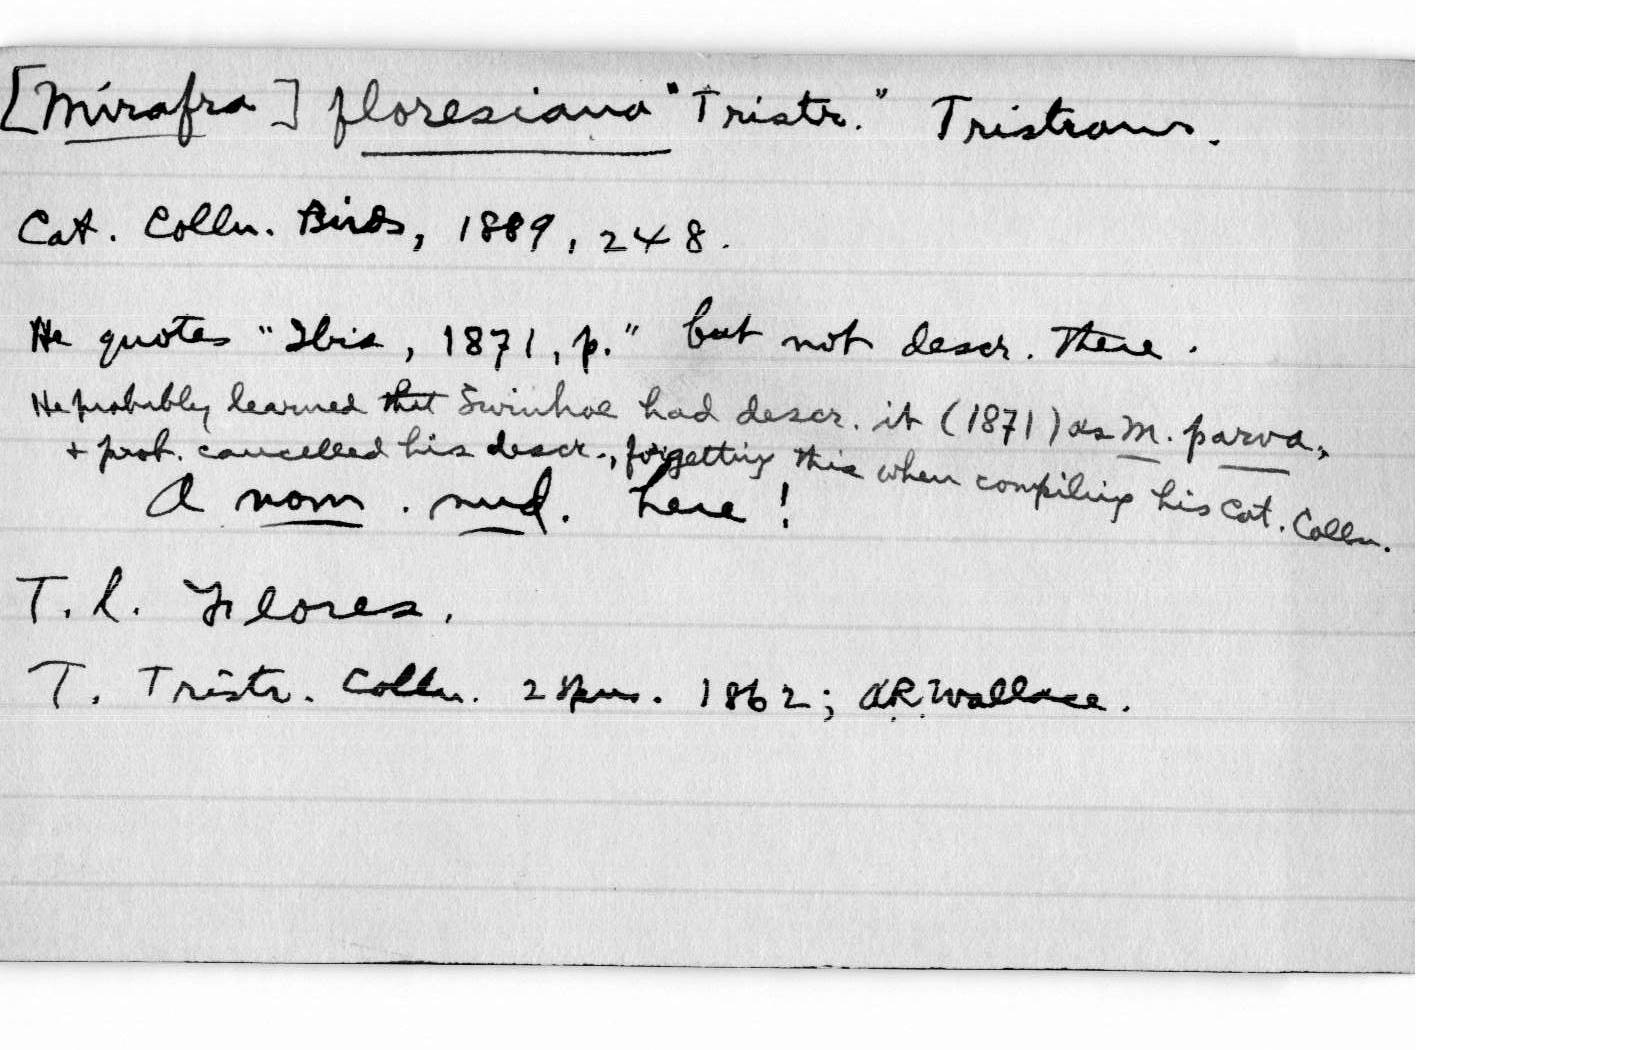 [Mirafra] floresiana "Tristr." Tristram.
Cat. Colln. Birds, 1889, 248.
He quotes "Ibis, 1871, p." but not descr. there.
He probably learned that Swinhoe had descr. it (1871) as M. parva,
+ prob. cancelled his descr., forgetting this when compiling his Cat. Colln.
A nom. nud. here!
T.L. Flores.
T. Tristr. Colln. 2 spms. 1862; A.R. Wallace.